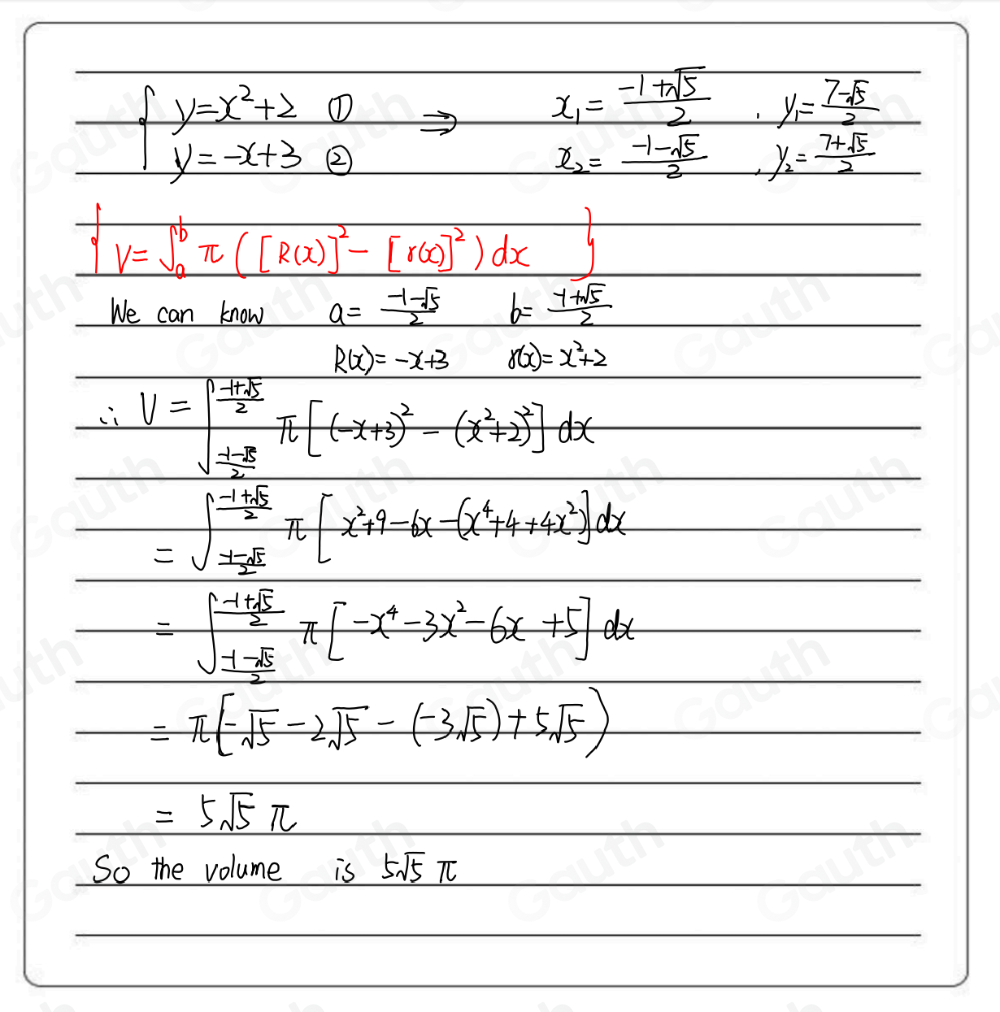 { y=x²+2 ① ⇒ x₁= (-1+√5)/2 , y₁= (7-√5)/2
y=-x+3 ② x₂= (-1-√5)/2 , y₂= (7+√5)/2
{ V=∫ₐᵇ π([R(x)]²-[r(x)]²)dx }
We can know a= (-1-√5)/2 b= (-1+√5)/2
R(x)=-x+3 r(x)=x²+2
∴ V = ∫_{(-1-√5)/2}^{(-1+√5)/2} π[(-x+3)²-(x²+2)²]dx
= ∫_{(-1-√5)/2}^{(-1+√5)/2} π[x²+9-6x-(x⁴+4+4x²)]dx
= ∫_{(-1-√5)/2}^{(-1+√5)/2} π[-x⁴-3x²-6x+5]dx
= π[-√5-2√5-(-3√5)+5√5)
= 5√5 π
So the volume is 5√5 π